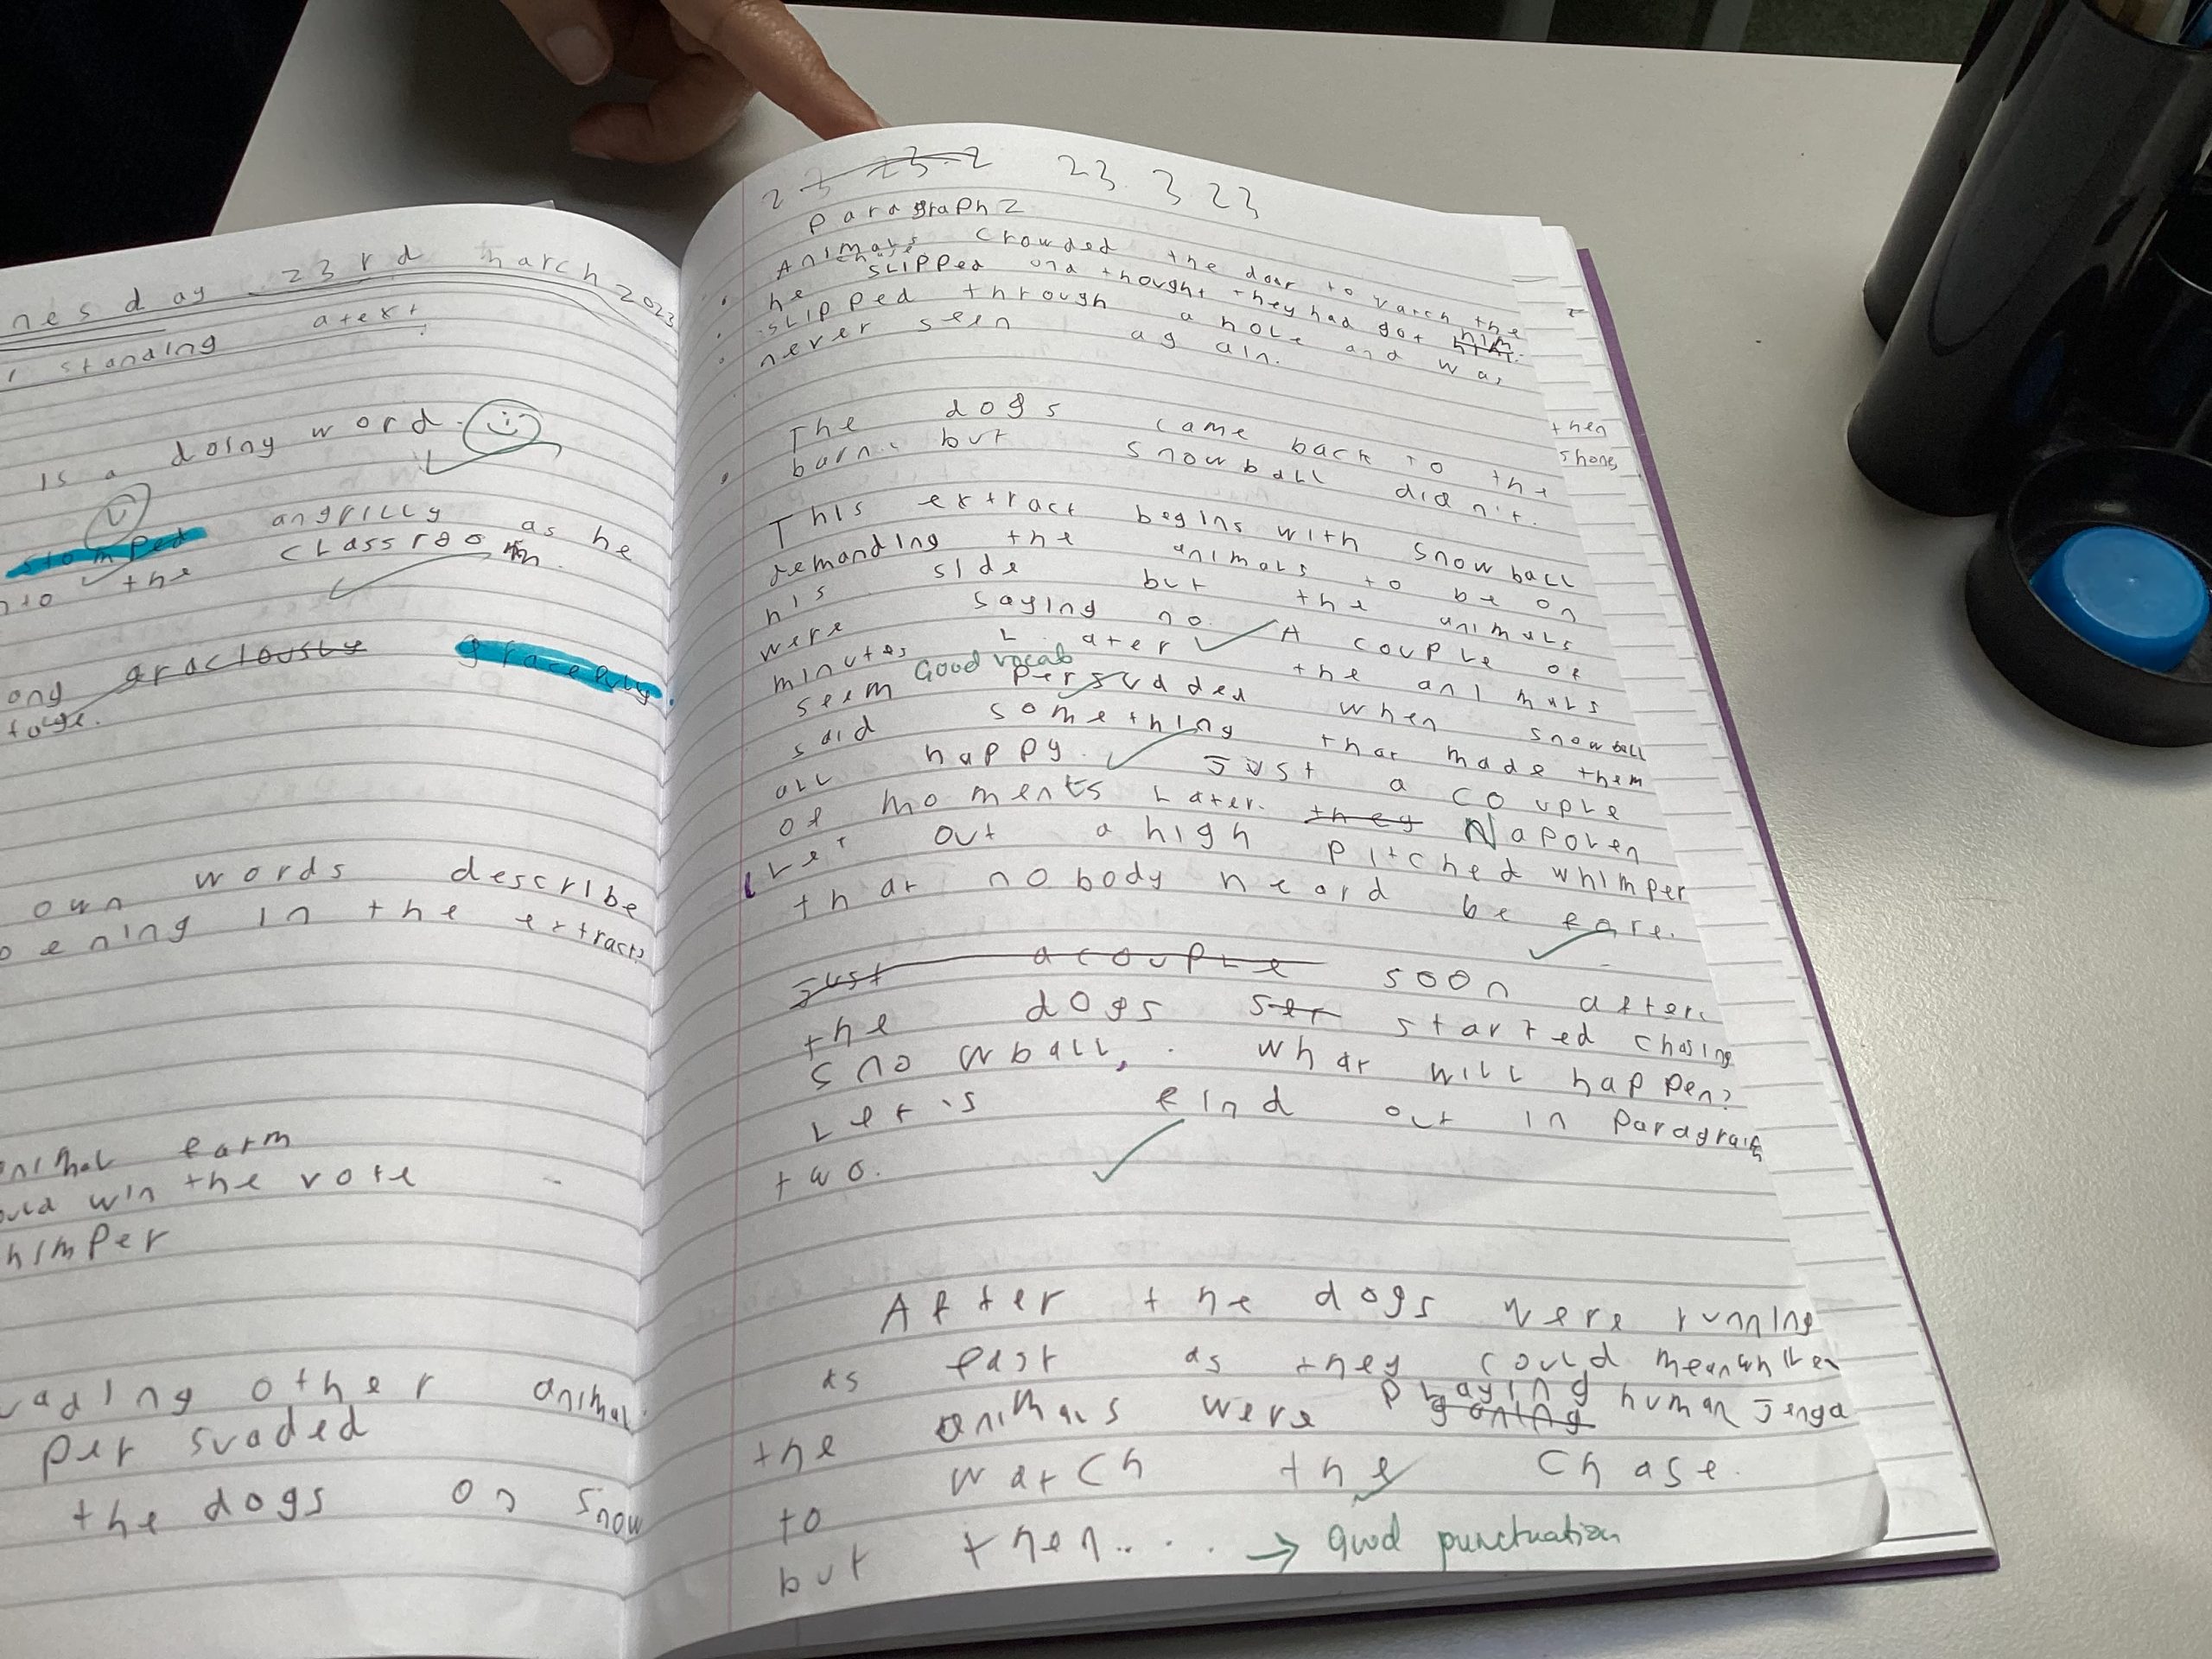 nesday 23rd March 2023
standing a text
is a doing word.
stomped angrilly as he
the classroom.
graciously gracefuly.
own words describe
ening in the extract
farm
win the vote
himper
ading other animal
persvaded
the dogs on snow
23 23.2 23.3.23
Paragraph 2
Animals crowded the door to watch the
chase
he slipped and thought they had got him.
slipped through a hole and was
never seen again.
The dogs came back to the
barn. but snowball didn't.
This extract begins with snowball
demanding the animals to be on
his side but the animals
were saying no. A couple of
minutes Later the animals
Good vocab
seem persuaded when snowball
said something that made them
all happy. Just a couple
of moments Later. they Napolen
Let out a high pitched whimper
that nobody heard be fore.
Just a couple soon after.
the dogs set started chasing
snowball, what will happen?
Let's find out in Paragraph
two.
After the dogs were running
as fast as they could
the animals were playing human Jenga
to watch the chase.
but then.... → Good punctuation
then